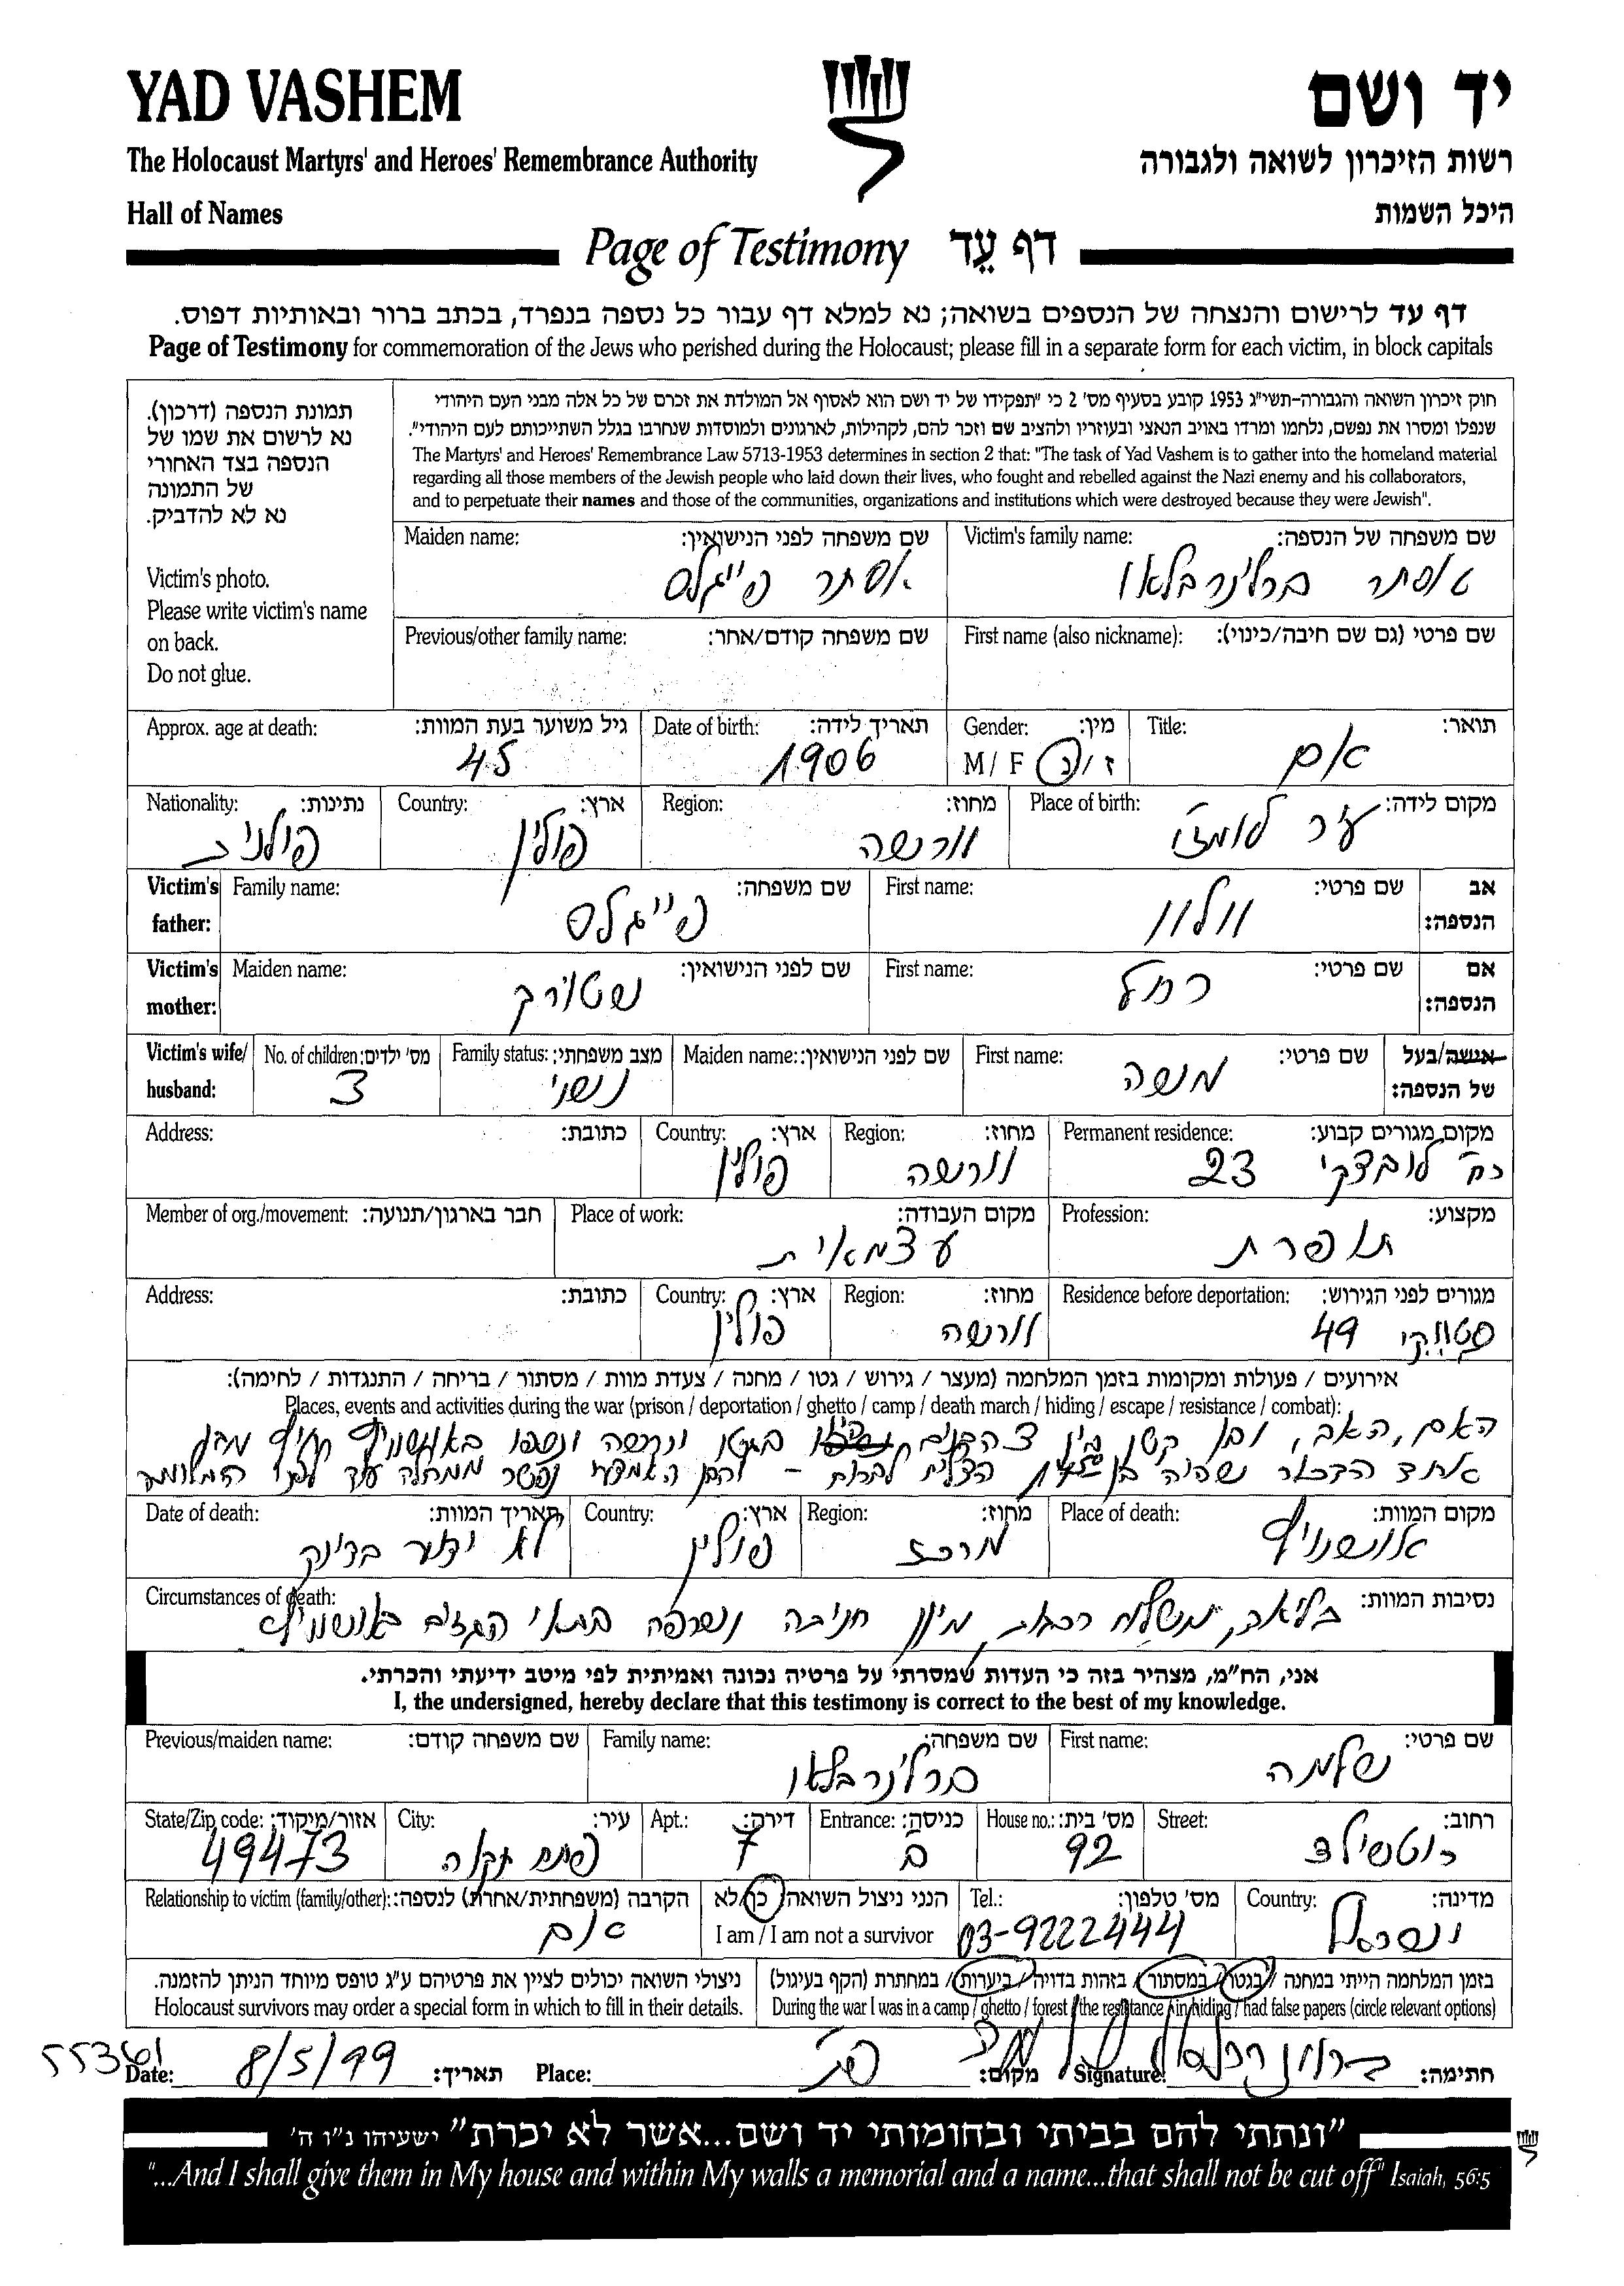 YAD VASHEM
יד ושם
The Holocaust Martyrs' and Heroes' Remembrance Authority
רשות הזיכרון לשואה ולגבורה
Hall of Names
היכל השמות
Page of Testimony דף עֵד
דף עד לרישום והנצחה של הנספים בשואה; נא למלא דף עבור כל נספה בנפרד, בכתב ברור ובאותיות דפוס.
Page of Testimony for commemoration of the Jews who perished during the Holocaust; please fill in a separate form for each victim, in block capitals
תמונת הנספה (דרכון).
נא לרשום את שמו של
הנספה בצד האחורי
של התמונה
נא לא להדביק.
Victim's photo.
Please write victim's name
on back.
Do not glue.
חוק זיכרון השואה והגבורה-תשי"ג 1953 קובע בסעיף מס' 2 כי "תפקידו של יד ושם הוא לאסוף אל המולדת את זכרם של כל אלה מבני העם היהודי
שנפלו ומסרו את נפשם, נלחמו ומרדו באויב הנאצי ובעוזריו ולהציב שם וזכר להם, לקהילות, לארגונים ולמוסדות שנחרבו בגלל השתייכותם לעם היהודי".
The Martyrs' and Heroes' Remembrance Law 5713-1953 determines in section 2 that: "The task of Yad Vashem is to gather into the homeland material
regarding all those members of the Jewish people who laid down their lives, who fought and rebelled against the Nazi enemy and his collaborators,
and to perpetuate their names and those of the communities, organizations and institutions which were destroyed because they were Jewish".
Victim's family name: שם משפחה של הנספה: Maiden name: שם משפחה לפני הנישואין:
אסתר ברלינרבלאו אסתר פייגלס
First name (also nickname): שם פרטי (גם שם חיבה/כינוי): Previous/other family name: שם משפחה קודם/אחר:
Title: תואר: Gender: מין: Date of birth: תאריך לידה: Approx. age at death: גיל משוער בעת המוות:
אם M / F ז / נ 1906 45
Place of birth: מקום לידה: Region: מחוז: Country: ארץ: Nationality: נתינות:
עיר לומזו וורשה פולין פולני
Victim's father: אב הנספה: First name: שם פרטי: Family name: שם משפחה:
וולוו פייגלס
Victim's mother: אם הנספה: First name: שם פרטי: Maiden name: שם לפני הנישואין:
רחל
Victim's wife/ husband: אישה/בעל של הנספה: First name: שם פרטי: Maiden name: שם לפני הנישואין: Family status: מצב משפחתי: No. of children: מס' ילדים:
משה נשוי 3
Permanent residence: מקום מגורים קבוע: Region: מחוז: Country: ארץ: Address: כתובת:
רח' לובצקי 23 וורשה פולין
Profession: מקצוע: Place of work: מקום העבודה: Member of org./movement: חבר בארגון/תנועה:
תופרת עצמאית
Residence before deportation: מגורים לפני הגירוש: Region: מחוז: Country: ארץ: Address: כתובת:
49 וורשה פולין
אירועים / פעולות ומקומות בזמן המלחמה (מעצר / גירוש / גטו / מחנה / צעדת מוות / מסתור / בריחה / התנגדות / לחימה):
Places, events and activities during the war (prison / deportation / ghetto / camp / death march / hiding / escape / resistance / combat):
האם, האב, ובן קטן מבין 3 הבנים בגטו וורשה ונספו באושוויץ
אחד הבכור שהיה בן הצליח לברוח - והבן האמצעי נפטר ממחלה עוד לפני המלחמה
Place of death: מקום המוות: Region: מחוז: Country: ארץ: Date of death: תאריך המוות:
אושוויץ מרכז פולין לא ידוע בדיוק
Circumstances of death: נסיבות המוות:
משלוח רכבת, מיון חטיבה ונשרפה בתאי הגזים באושוויץ
אני, הח"מ, מצהיר בזה כי העדות שמסרתי על פרטיה נכונה ואמיתית לפי מיטב ידיעתי והכרתי.
I, the undersigned, hereby declare that this testimony is correct to the best of my knowledge.
First name: שם פרטי: Family name: שם משפחה: Previous/maiden name: שם משפחה קודם:
שלמה ברלינרבלאו
Street: רחוב: House no.: מס' בית: Entrance: כניסה: Apt.: דירה: City: עיר: State/Zip code: אזור/מיקוד:
רוטשילד 92 ב 7 פתח תקוה 49473
Country: מדינה: Tel.: מס' טלפון: הנני ניצול השואה כן/לא I am / I am not a survivor Relationship to victim (family/other): הקרבה (משפחתית/אחרת) לנספה:
ישראל 03-9222444 אם
בזמן המלחמה הייתי במחנה / בגטו / במסתור / בזהות בדויה / ביערות / במחתרת (הקף בעיגול)
During the war I was in a camp / ghetto / forest / the resistance / in hiding / had false papers (circle relevant options)
ניצולי השואה יכולים לציין את פרטיהם ע"ג טופס מיוחד הניתן להזמנה.
Holocaust survivors may order a special form in which to fill in their details.
55361
Date: 8/5/99 תאריך: Place: מקום: Signature: חתימה:
"ונתתי להם בביתי ובחומותי יד ושם...אשר לא יכרת" ישעיהו נ"ו ה'
"...And I shall give them in My house and within My walls a memorial and a name...that shall not be cut off" Isaiah, 56:5